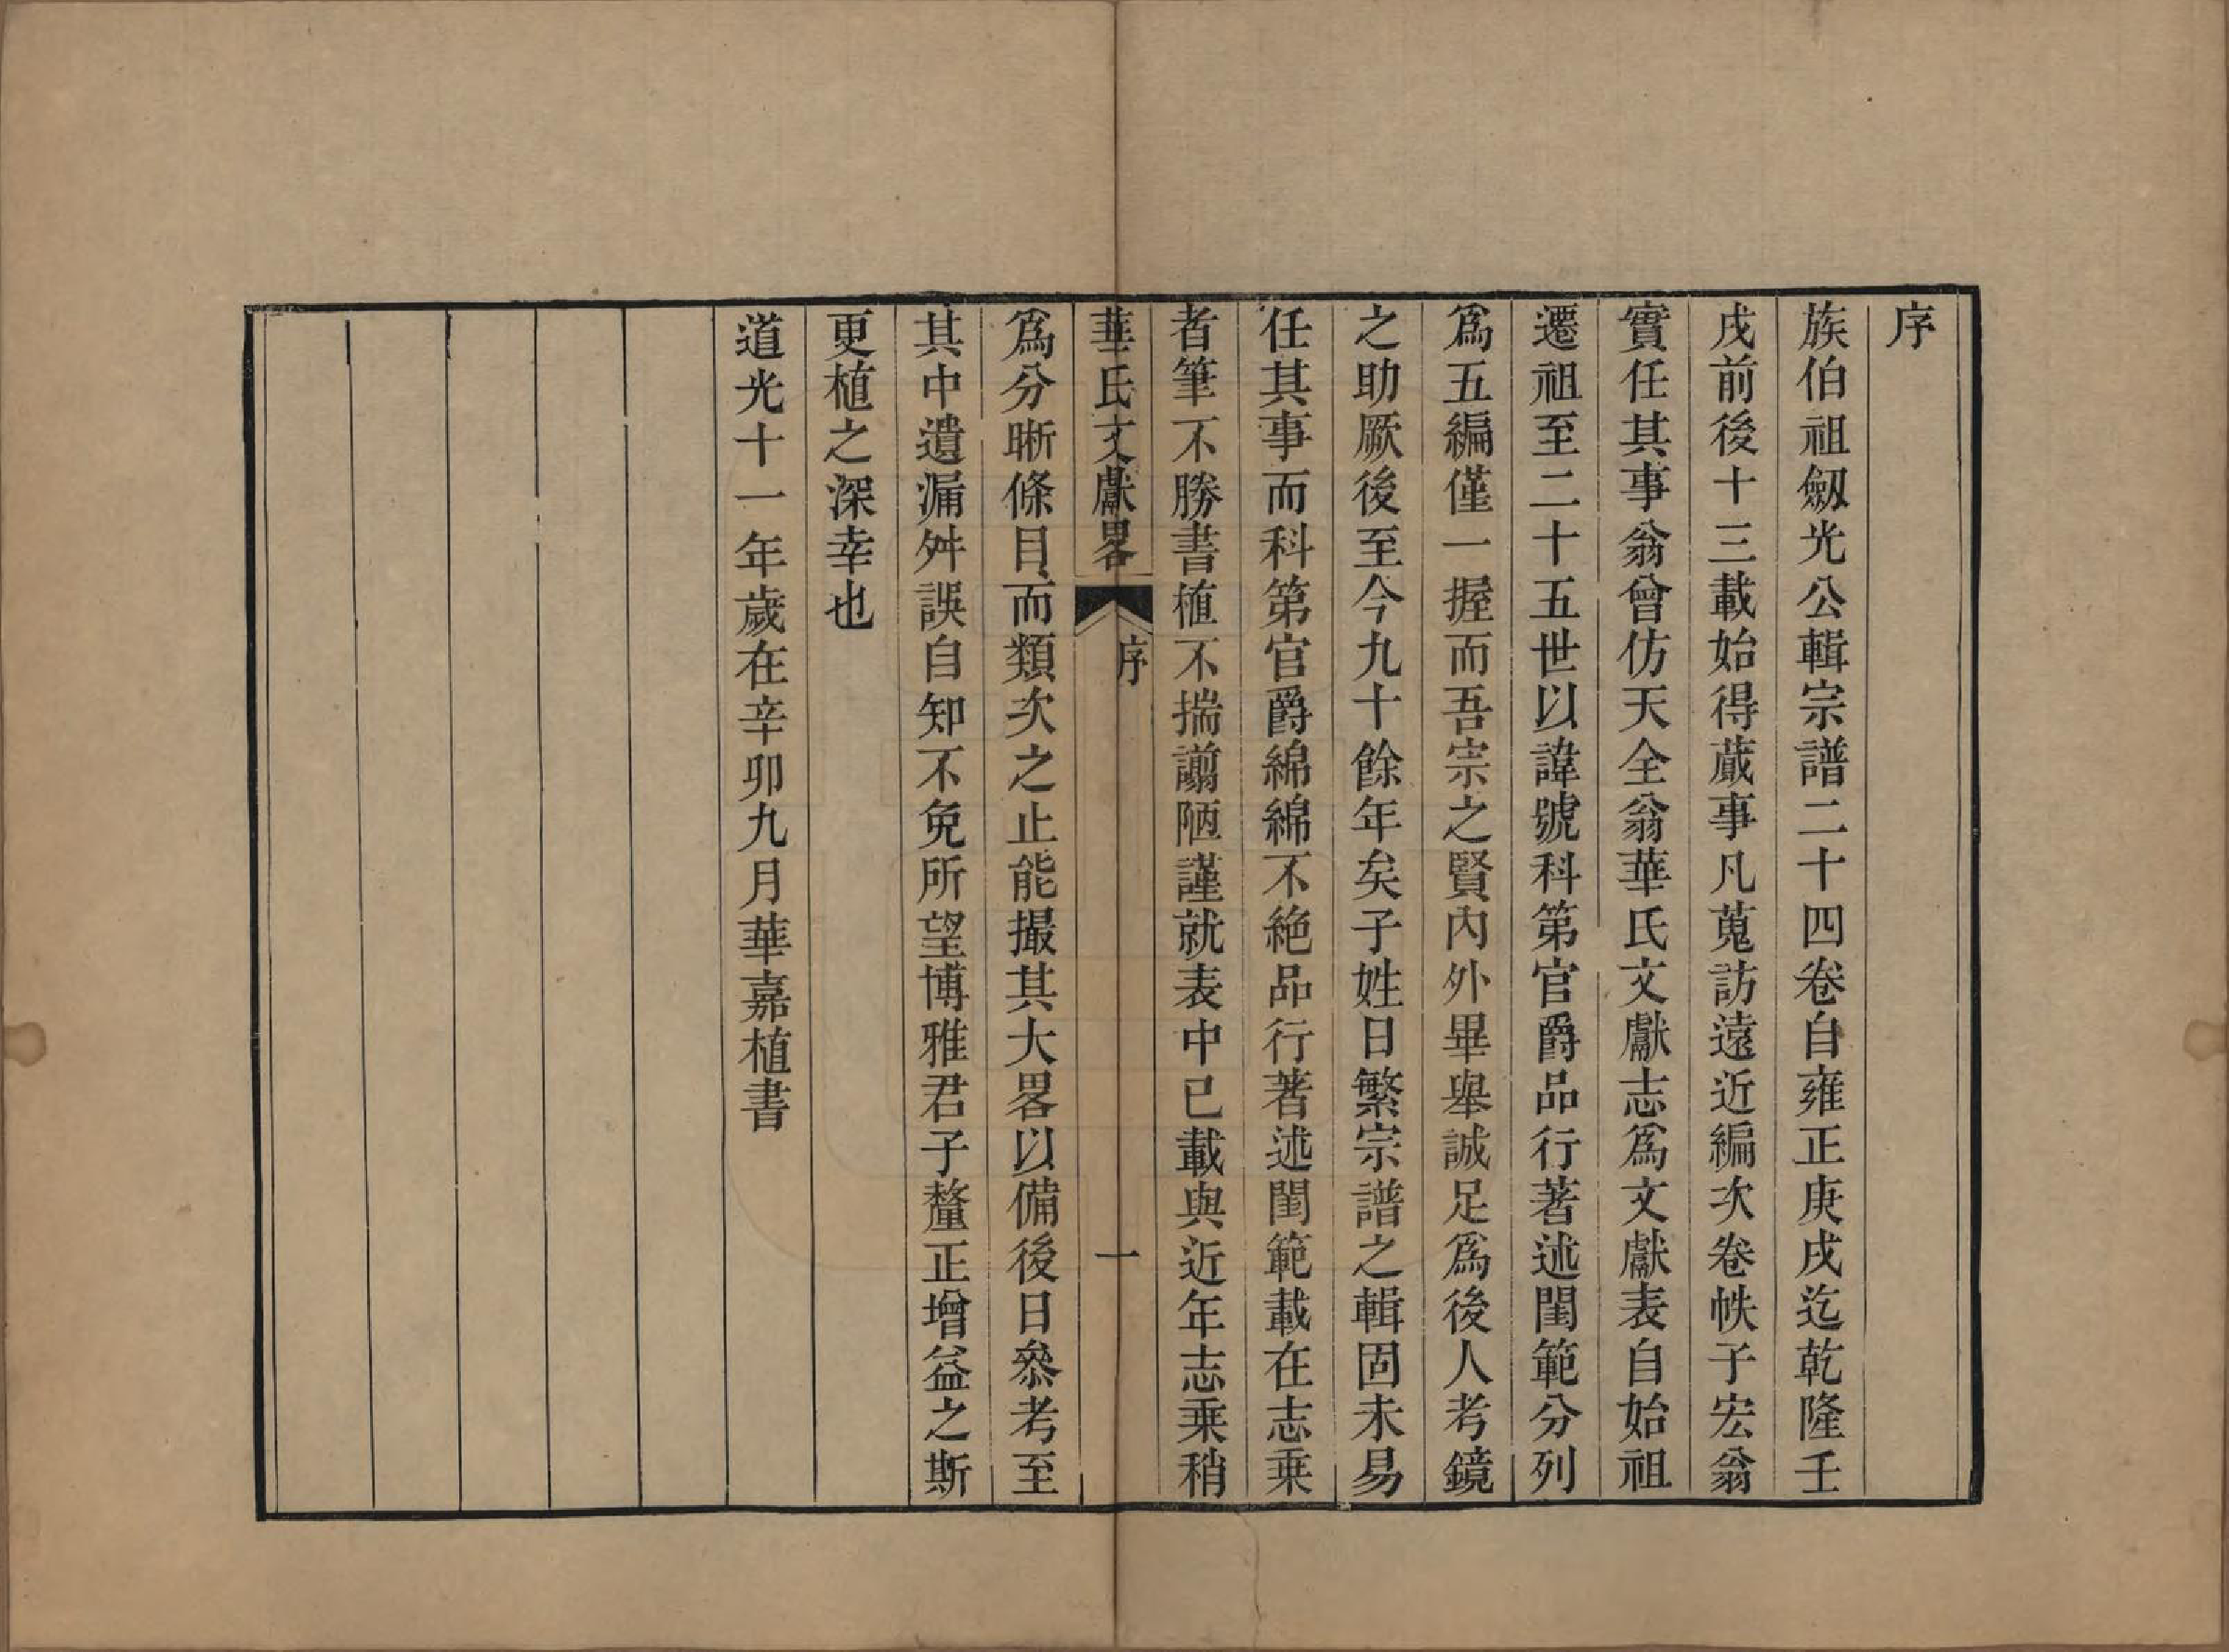 序
族伯祖劒光公輯宗譜二十四卷自雍正庚戌迄乾隆壬
戌前後十三載始得蕆事凡蒐訪遠近編次卷帙子宏翁
實任其事翁曾仿天全翁華氏文獻志爲文獻表自始祖
遷祖至二十五世以諱號科第官爵品行著述閨範分列
爲五編僅一握而吾宗之賢內外畢舉誠足爲後人考鏡
之助厥後至今九十餘年矣子姓日繁宗譜之輯固未易
任其事而科第官爵綿綿不絶品行著述閨範載在志乗
者筆不勝書植不揣謭陋謹就表中已載與近年志乗稍
華氏文獻畧 序 一
爲分晰條目而類次之止能撮其大畧以備後日叅考至
其中遺漏舛誤自知不免所望博雅君子釐正增益之斯
更植之深幸也
道光十一年歲在辛卯九月華嘉植書